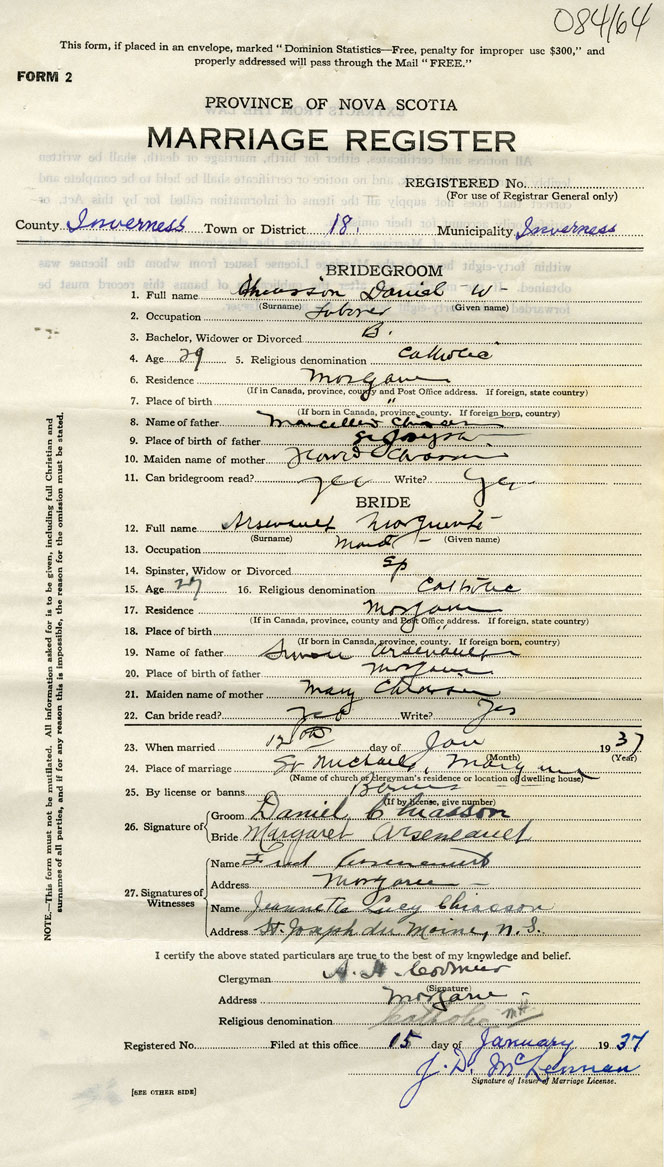 084/64
This form, if placed in an envelope, marked "Dominion Statistics—Free, penalty for improper use $300," and
properly addressed will pass through the Mail "FREE."
FORM 2
PROVINCE OF NOVA SCOTIA
MARRIAGE REGISTER
REGISTERED No.
(For use of Registrar General only)
County Inverness Town or District 18. Municipality Inverness
BRIDEGROOM
1. Full name Chiasson Daniel W-
(Surname) (Given name)
2. Occupation Laborer
3. Bachelor, Widower or Divorced B.
4. Age 29 5. Religious denomination Catholic
6. Residence Margaree
(If in Canada, province, county and Post Office address. If foreign, state country)
7. Place of birth "
(If born in Canada, province, county. If foreign born, country)
8. Name of father Marcellin Chiasson
9. Place of birth of father St Joseph
10. Maiden name of mother Chiasson
11. Can bridegroom read? Yes Write? Yes
BRIDE
12. Full name Arsenault Marguerite
(Surname) (Given name)
13. Occupation Maid
14. Spinster, Widow or Divorced Sp
15. Age 27 16. Religious denomination Catholic
17. Residence Margaree
(If in Canada, province, county and Post Office address. If foreign, state country)
18. Place of birth "
(If born in Canada, province, county. If foreign born, country)
19. Name of father Simon Arsenault
20. Place of birth of father Margaree
21. Maiden name of mother Mary Chiasson
22. Can bride read? Yes Write? Yes
23. When married 12th day of Jan 1937
(Month) (Year)
24. Place of marriage St Michaels, Margaree
(Name of church or clergyman's residence or location of dwelling house)
25. By license or banns Banns
(If by license, give number)
26. Signature of
Groom Daniel Chiasson
Bride Margaret Arseneault
27. Signatures of Witnesses
Name Fred Arsenault
Address Margaree
Name Jeannette Lucy Chiasson
Address St. Joseph du Moine, N.S.
I certify the above stated particulars are true to the best of my knowledge and belief.
Clergyman A. H. Cormier
(Signature)
Address Margaree
Religious denomination Catholic
Registered No. Filed at this office 15 day of January 1937
J. D. McLennan
Signature of Issuer of Marriage License.
[SEE OTHER SIDE]
NOTE.—This form must not be mutilated. All information asked for is to be given, including full Christian and
surnames of all parties, and if for any reason this is impossible, the reason for the omission must be stated.